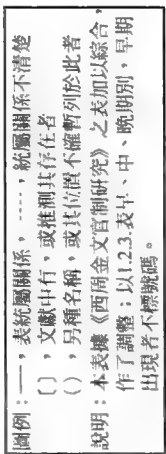 圖例：——，表統屬關係，‥‥，統屬關係不清楚
〔〕，文獻中有，或推測其存在者
（），另種名稱，或其位置不確暫列於此者
說明：本表據《西周金文官制研究》之表加以綜合，
作了調整；以1.2.3.表早、中、晚期別，早期
出現者不標號碼。